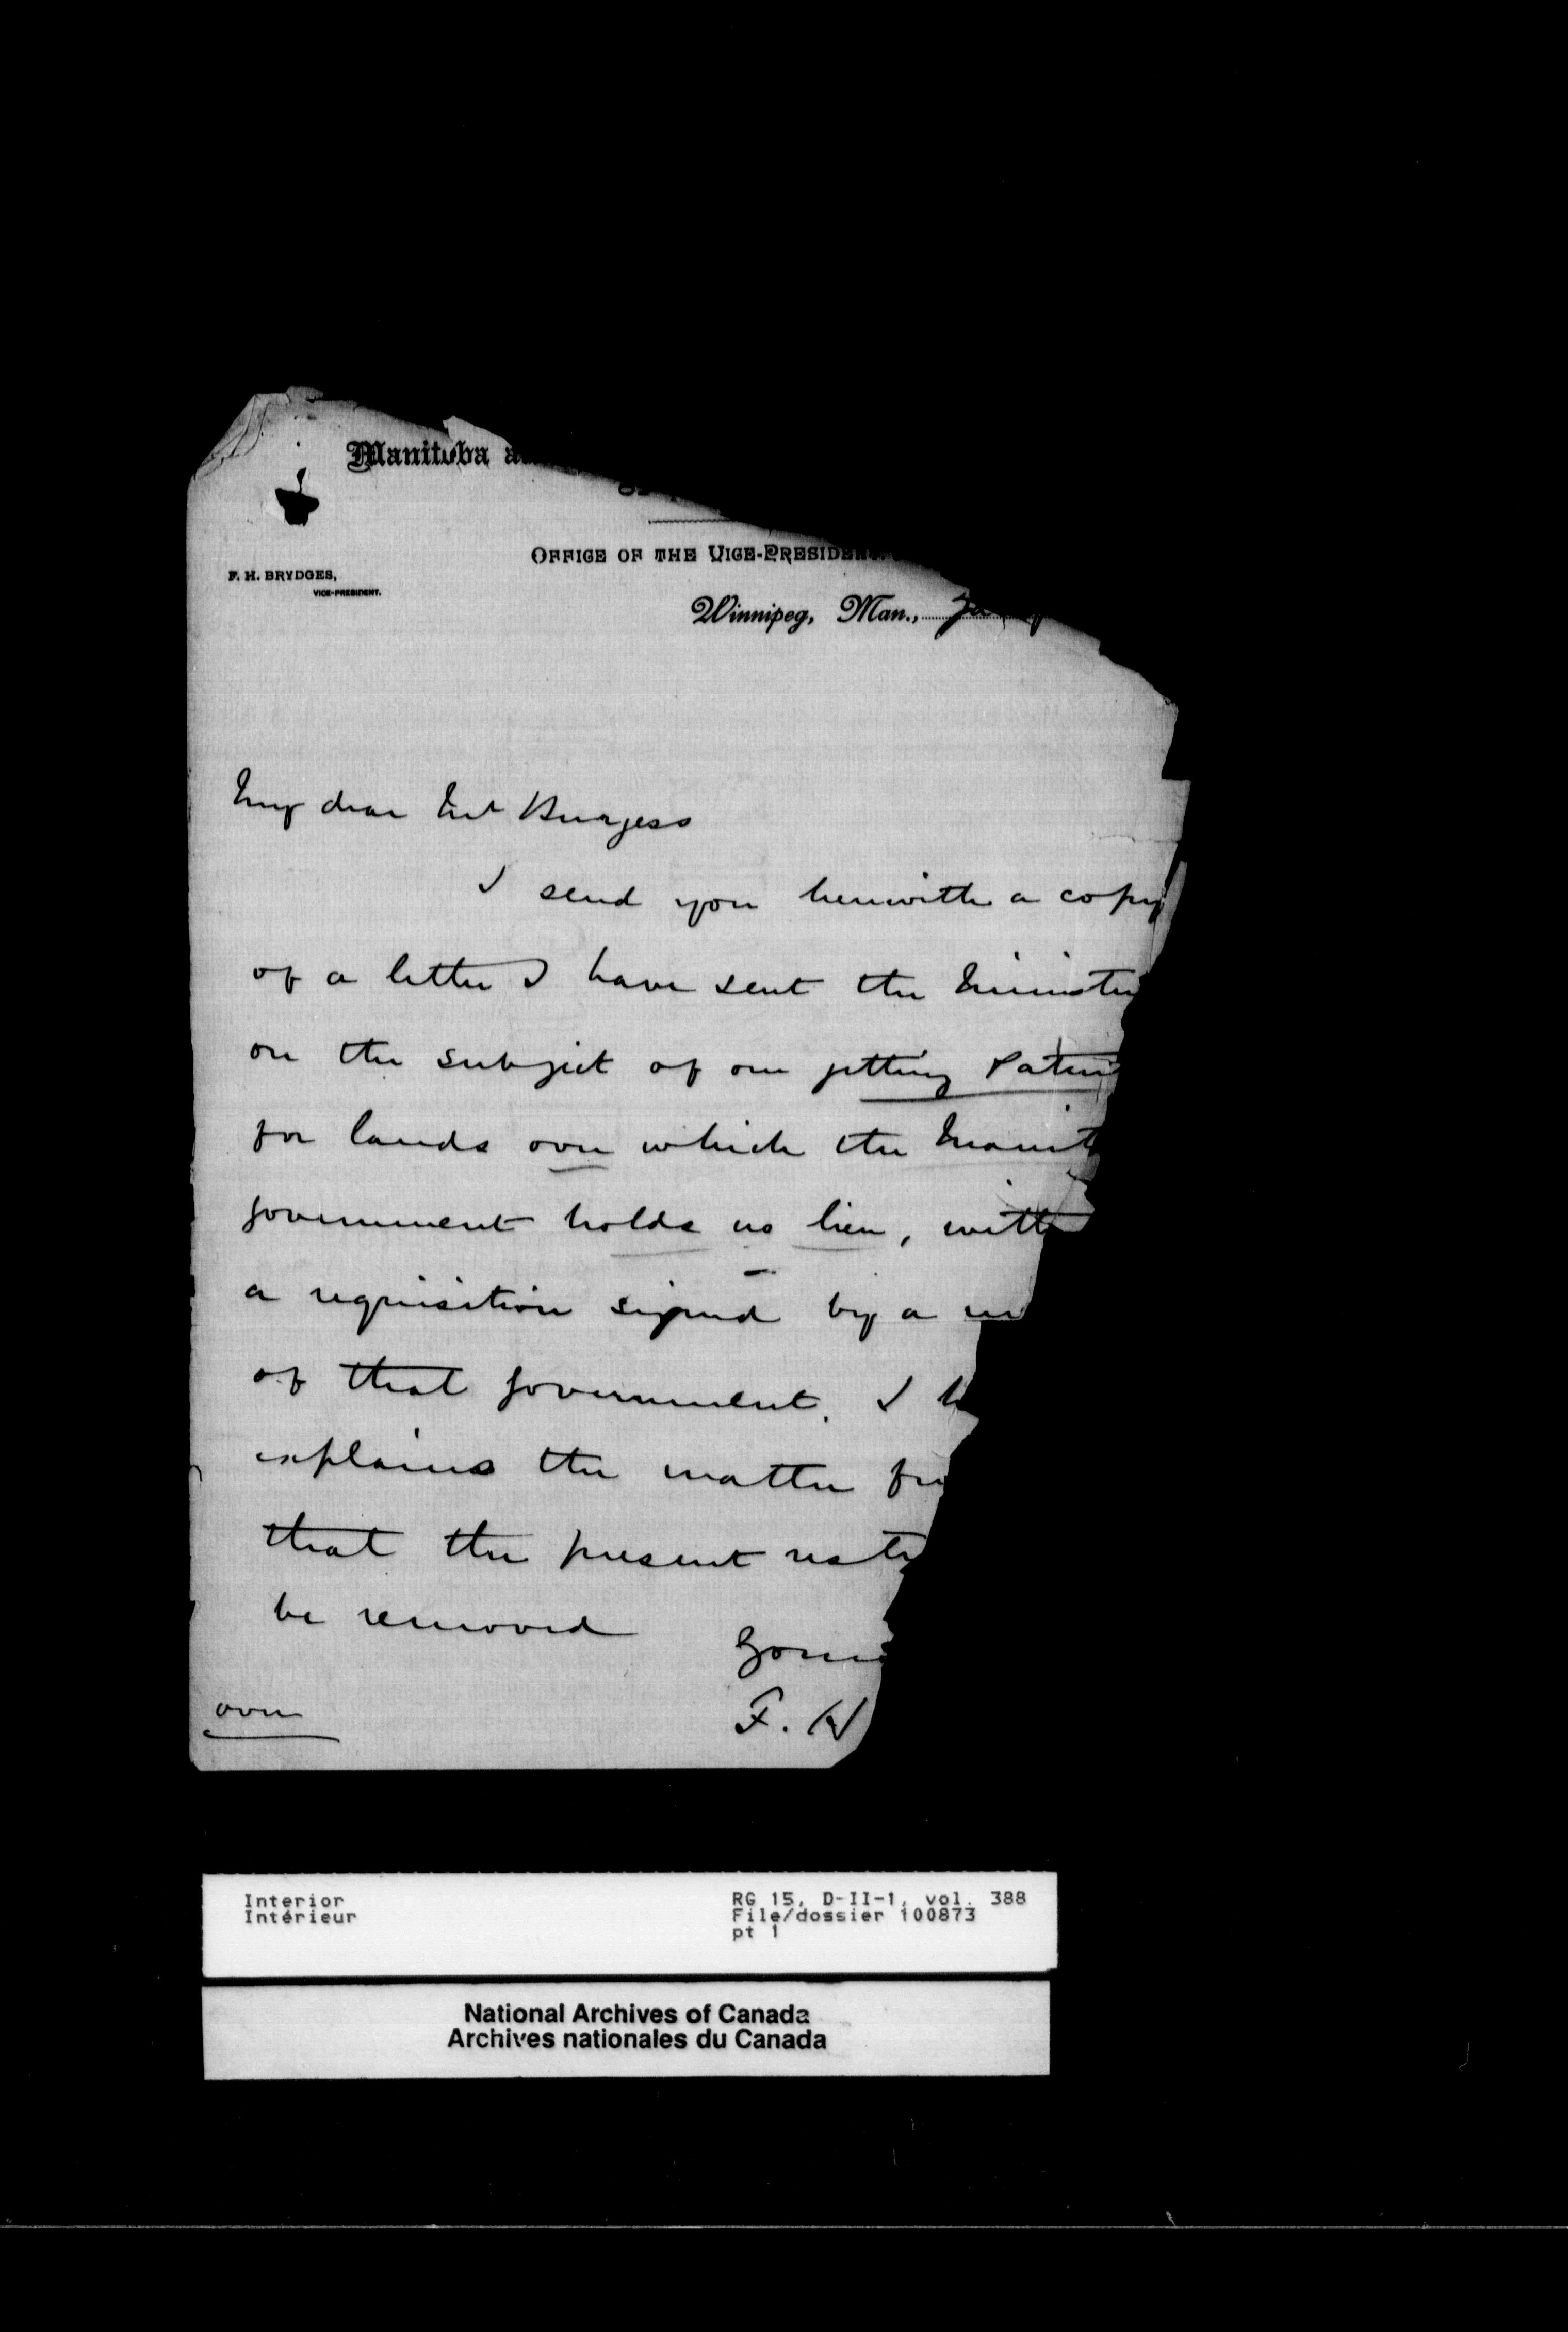 Manitoba a
OFFICE OF THE VICE-PRESIDENT
F. H. BRYDGES,
VICE-PRESIDENT.
Winnipeg, Man.,
My dear Mr Burgess
I send you herewith a copy
of a letter I have sent the Minister
on the subject of our getting Paten
for lands over which the Manit
government holds no lien, with
a requisition signed by a m
of that government. I h
explains the matter fu
that the present rest
be removed
Yours
F. H
over
Interior
Intérieur
RG 15, D-II-1, vol. 388
File/dossier 100873
pt 1
National Archives of Canada
Archives nationales du Canada